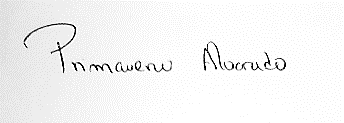 Primavera Alvarado